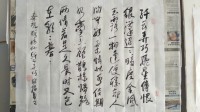 纤云弄巧飞星传恨
银汉迢迢暗度金风
玉露一相逢便胜却人
间无数柔情似水佳期
如梦忍顾鹊桥归路
两情若是久长时又岂
在朝朝暮暮